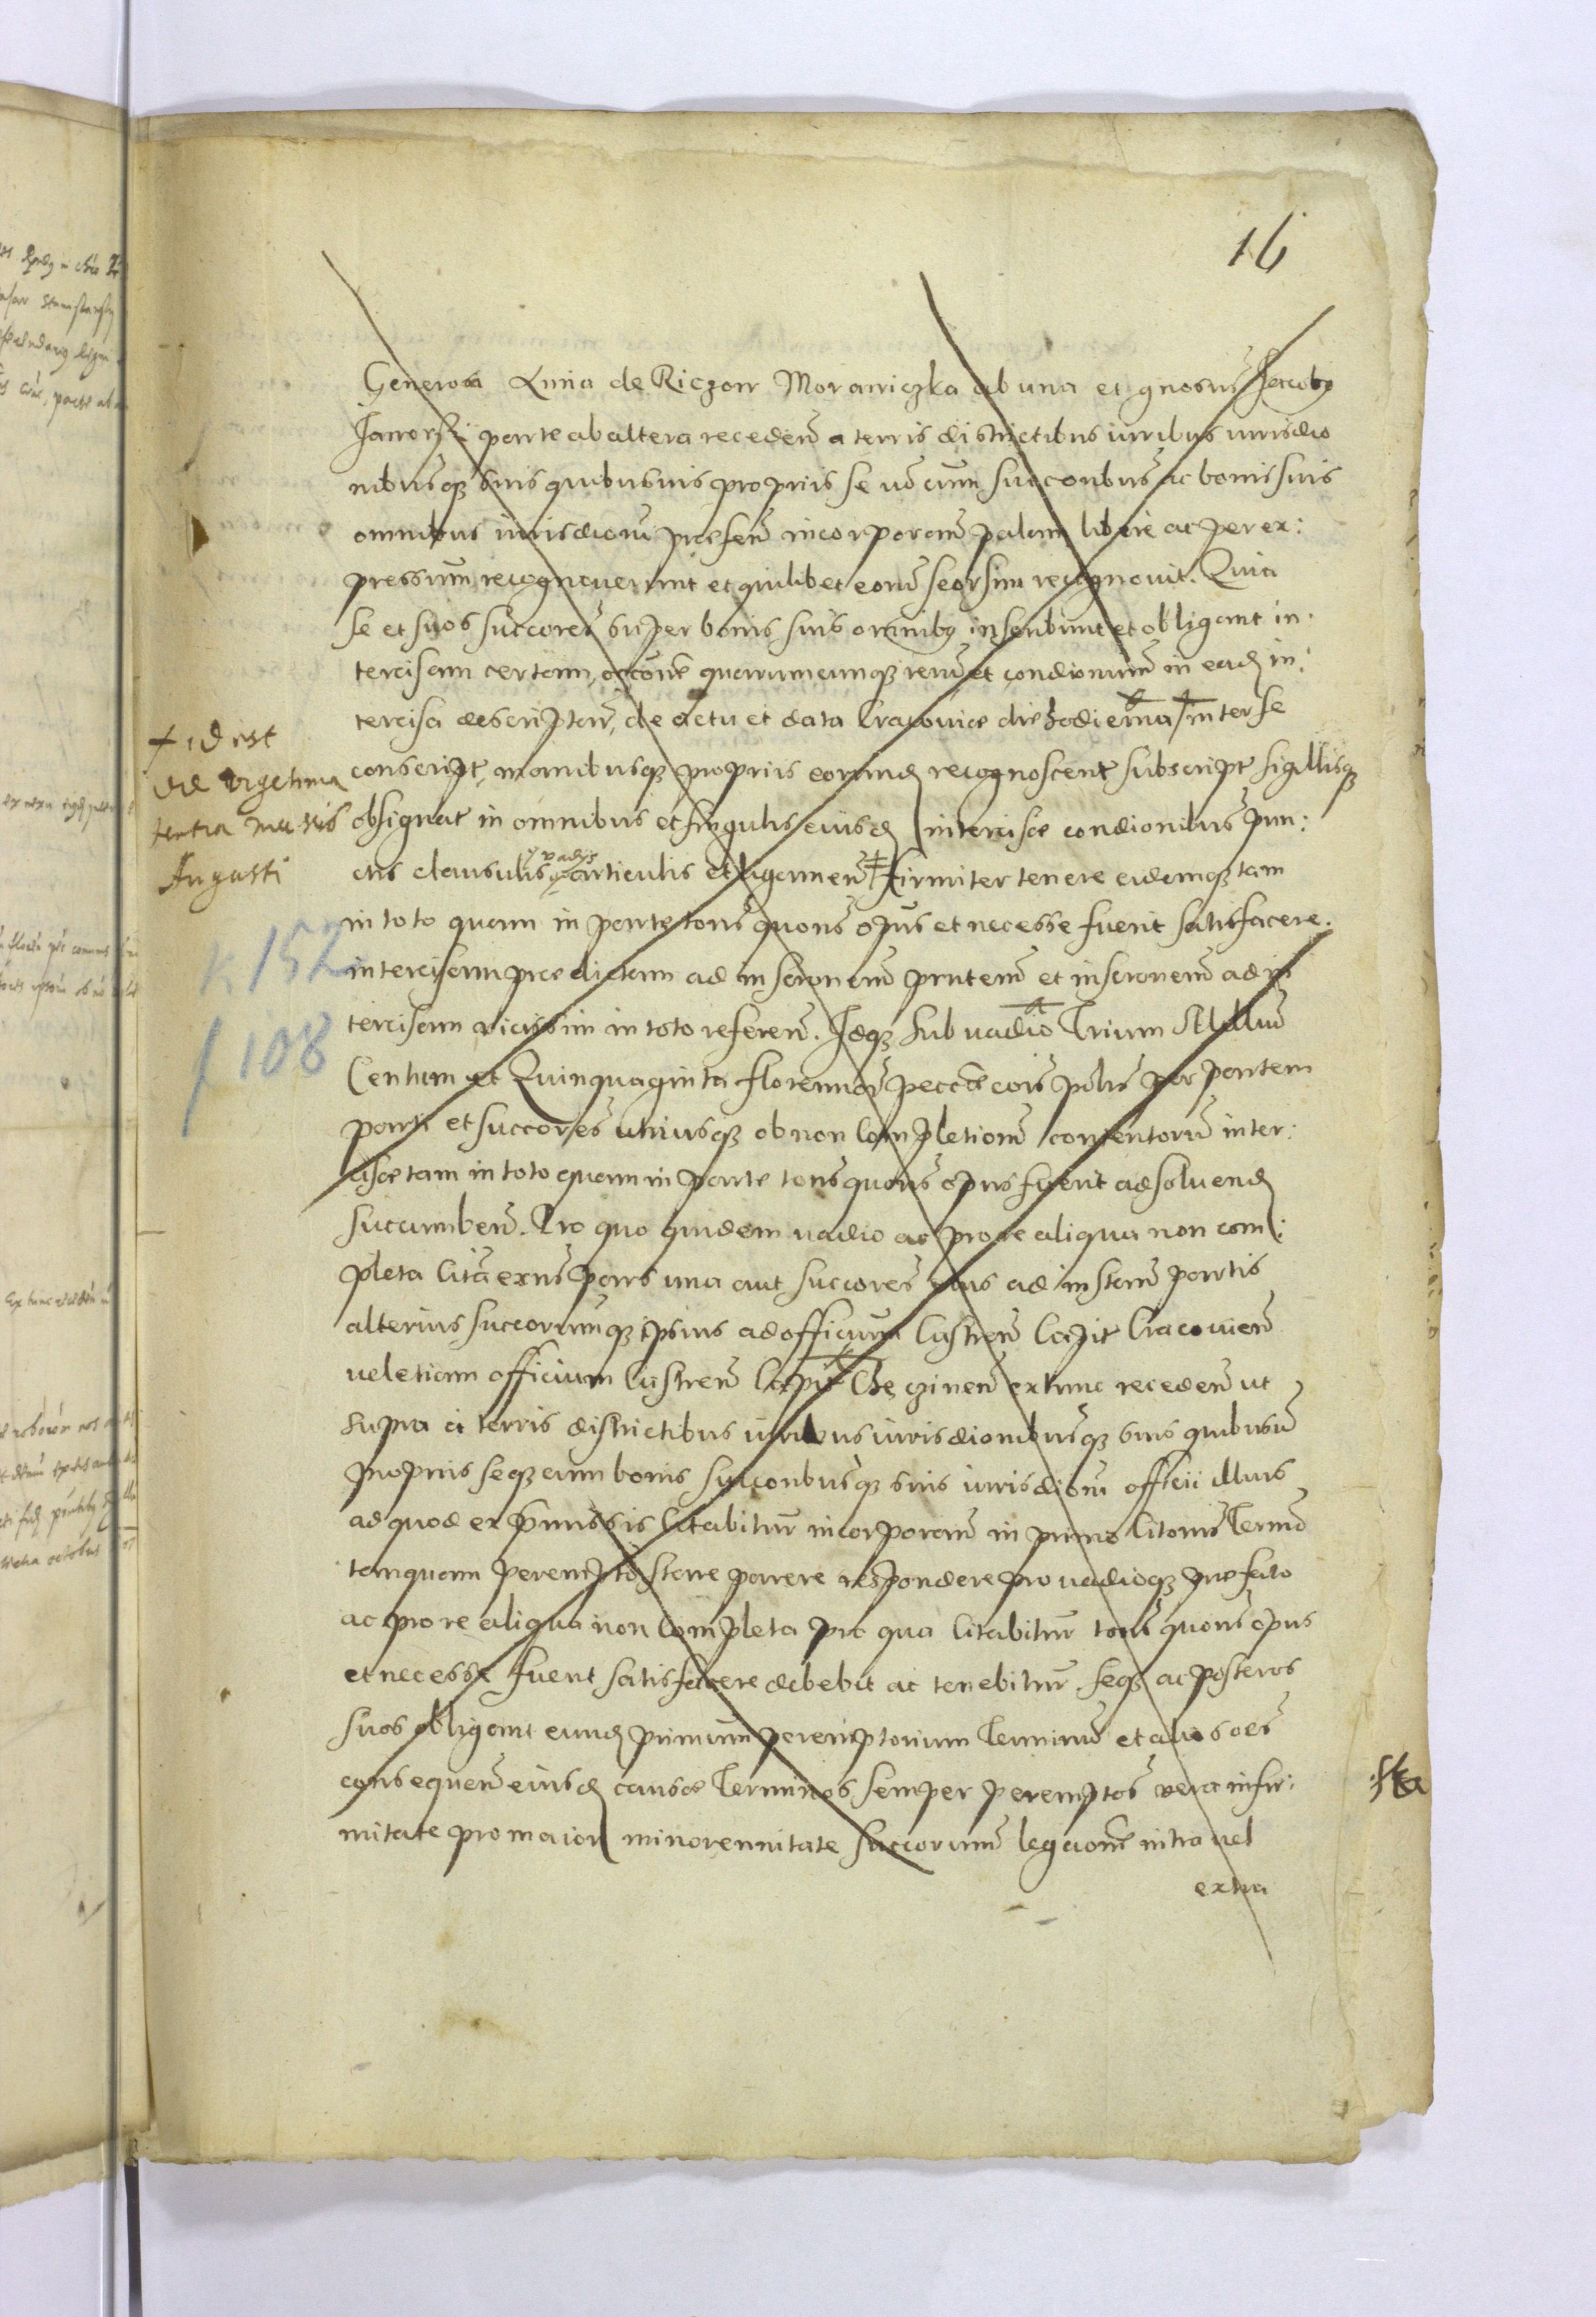 16
Generosa Anna de Riczow Morawiczka ab una et gnosus Jacobg
Jaworski parte ab altera receden a terris districtibus iuribus iurisdio
nibusqz suis quibusuis propriis se vd cum succoribus ac bonis suis
omnibus iurisdioni praesen incorporan palam libere ac per ex:
pressum recognouerunt et quilibet eorum seorsim recognouit. Quia
se et suos succores super bonis suis omnibg inscribunt et obligant in:
tercisam certam, occone quarumcunqz rerum et condionum in ead in:
tercisa descriptar, de actu et data Cracouiae die hodierna inter se
conscript, manibusqz propriis eorund recognoscent subscript sigillisqz
obsignat in omnibus et singulis eiusd intercisae condionibus pun:
ctis clausulis vadys articulis et ligamen firmiter tenere eidemqz tam
in toto quam in parte tons quons opus et necesse fuerit satisfacere:
intercisam praedictam ad inscronem pntem et inscronem ad in
tercisam vicissim in toto referen. Idqz sub vadio Trium Millium
Centum et Quinquaginta florenor pecc cois polus per partem
parti et succores utriusqz ob non completionem contentorum inter:
cisae tam in toto quam in parte tons quons opus fuerit ad soluend
succumben. Pro quo quidem vadio ac pro re aliqua non com:
pleta lita exns pars una aut succores eius ad instan partis
alterius succorumqz ipsius ad officium Castren Capit Cracouien
vel etiam officium Castren Capit Chęczinen extunc receden ut
supra a terris districtibus iuribus iurisdionibusqz suis quibusuis
propriis seqz cum bonis succoribusqz suis iurisdioni officii illius
ad quod ex pmissis citabitur incorporan in primo Citonis Termo
tanquam perempto stare parere respondere pro vadioqz praefato
ac pro re aliqua non completa pro qua citabitur tons quons opus
et necesse fuerit satisfacere debebit ac tenebitur. Seqz ac posteros
suos obligant eund primum peremptorium Terminum et alios oes
consequen eiusd causae Terminos semper peremptos vera infir:
mitate pro maiori minorennitate succorum legaone intra vel
extra
+ id est
die vigesima
tertia mensis
Augusti
K 152
f 108